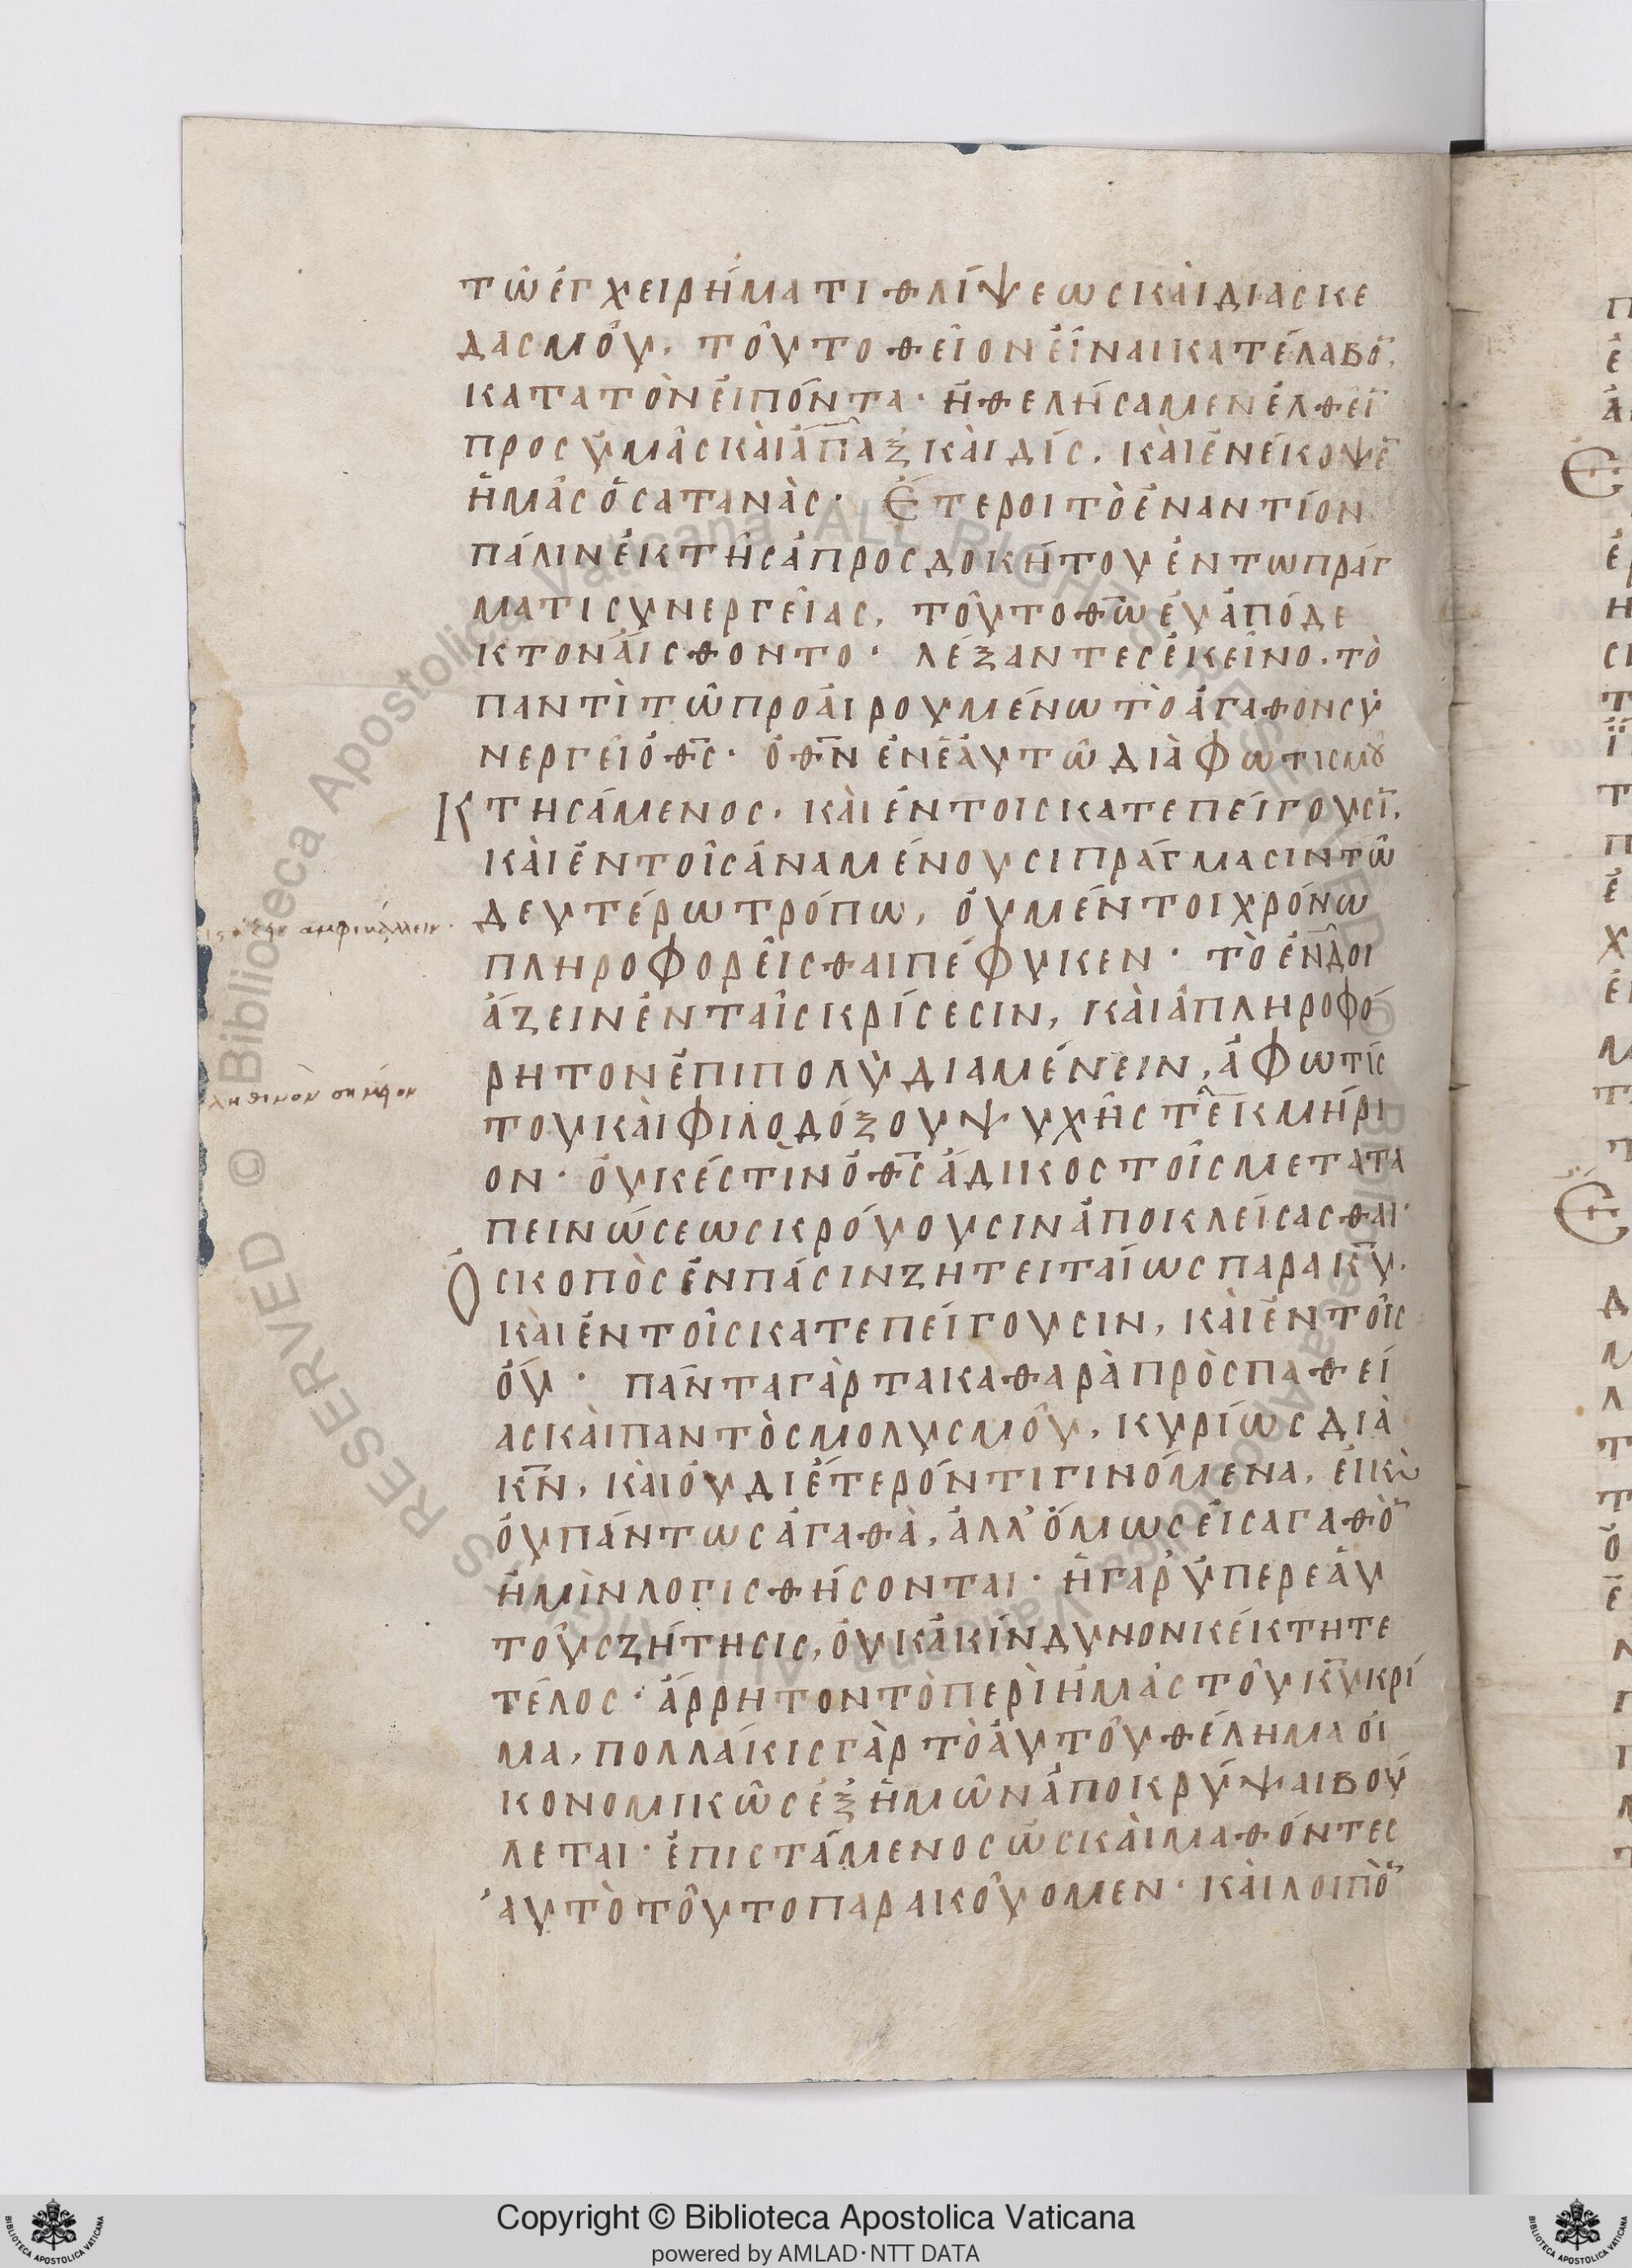 τῶ ἐγχειρήματι θλίψεως καὶ διασκε
δασμοῦ, τοῦτο θεῖον εἶναι κατέλαβο̅,
κατα τὸν εἰπόντα· ἠθελήσαμεν ἐλθεῖ̅
προς ὑμᾶς καὶ ἅπαξ καὶ δίς, καὶ ἐνέκοψε̅
ἡμᾶς ὁ σατανὰς· Ἕτεροι τὸ ἐναντίον
πάλιν ἐκ τῆς ἀπροσδοκήτου ἐν τω πράγ
ματι συνεργείας, τοῦτο θ̅ω̅ εὐαπόδε
κτον ἤισθοντο· λέξαντες ἐκεῖνο. τὸ
παντὶ τῶ προαιρουμένω τὸ ἀγαθὸν συ
νεργεῖ ὁ θ̅ς̅· ὁ θ̅ν̅ ἐν ἑαυτῶ διὰ φωτισμοῦ
Κτησάμενος, καὶ ἐν τοις κατεπείγουσϊ,
καὶ ἐν τοῖς ἀναμένουσι πράγμασιν τῶ
δευτέρω τρόπω, οὐ μέντοι χρόνω
πληροφορεῖσθαι πέφυκεν· τὸ ἐνδοι
άζειν ἐν ταῖς κρίσεσιν, καὶ ἀπληροφό
ρητον ἐπιπολὺ διαμένειν, ἀφωτίς
του καὶ φιλοδόξου ψυχῆς τεκμήρι
ον· οὐκ ἔστιν ὁ θ̅ς̅ ἄδικος τοῖς μετα τα
πεινώσεως κρούουσιν ἀποκλείσασθαι·
Ὁ σκοπὸς ἐν πάσιν ζητειταίως παρα κ̅υ̅,
καὶ ἐν τοῖς κατεπείγουσιν, καὶ ἐν τοῖς
οὔ· πάντα γὰρ τα καθαρὰ πρὸσπαθεί
ας καὶ παντὸς μολυσμοῦ, κυρίως διὰ
κ̅ν̅, καὶ οὐ δι ἕτερόν τι γινόμενα, εἰ καὶ
οὐ πάντως ἀγαθὰ, ἀλλ' ὅμως εἰς αγαθὸ̅
ἡμὶν λογισθήσονται· ἡ γαρ ὑπερ ἑαυ
τοὺς ζήτησις, οὐκ ἀκίνδυνον κέκτητε
τέλος· ἄρρητον τὸ περὶ ἡμᾶς τοῦ κ̅υ̅ κρί
μα, πολλάκις γὰρ τὸ αὐτοῦ θέλημα οἰ
κονομικῶς ἐξ ἡμῶν ἀποκρύψαι βού
λεται· ἐπιστάμενος ὡς καὶ μαθόντες
αυτὸ τοῦτο παρακούομεν· καὶ λοιπὸ̅